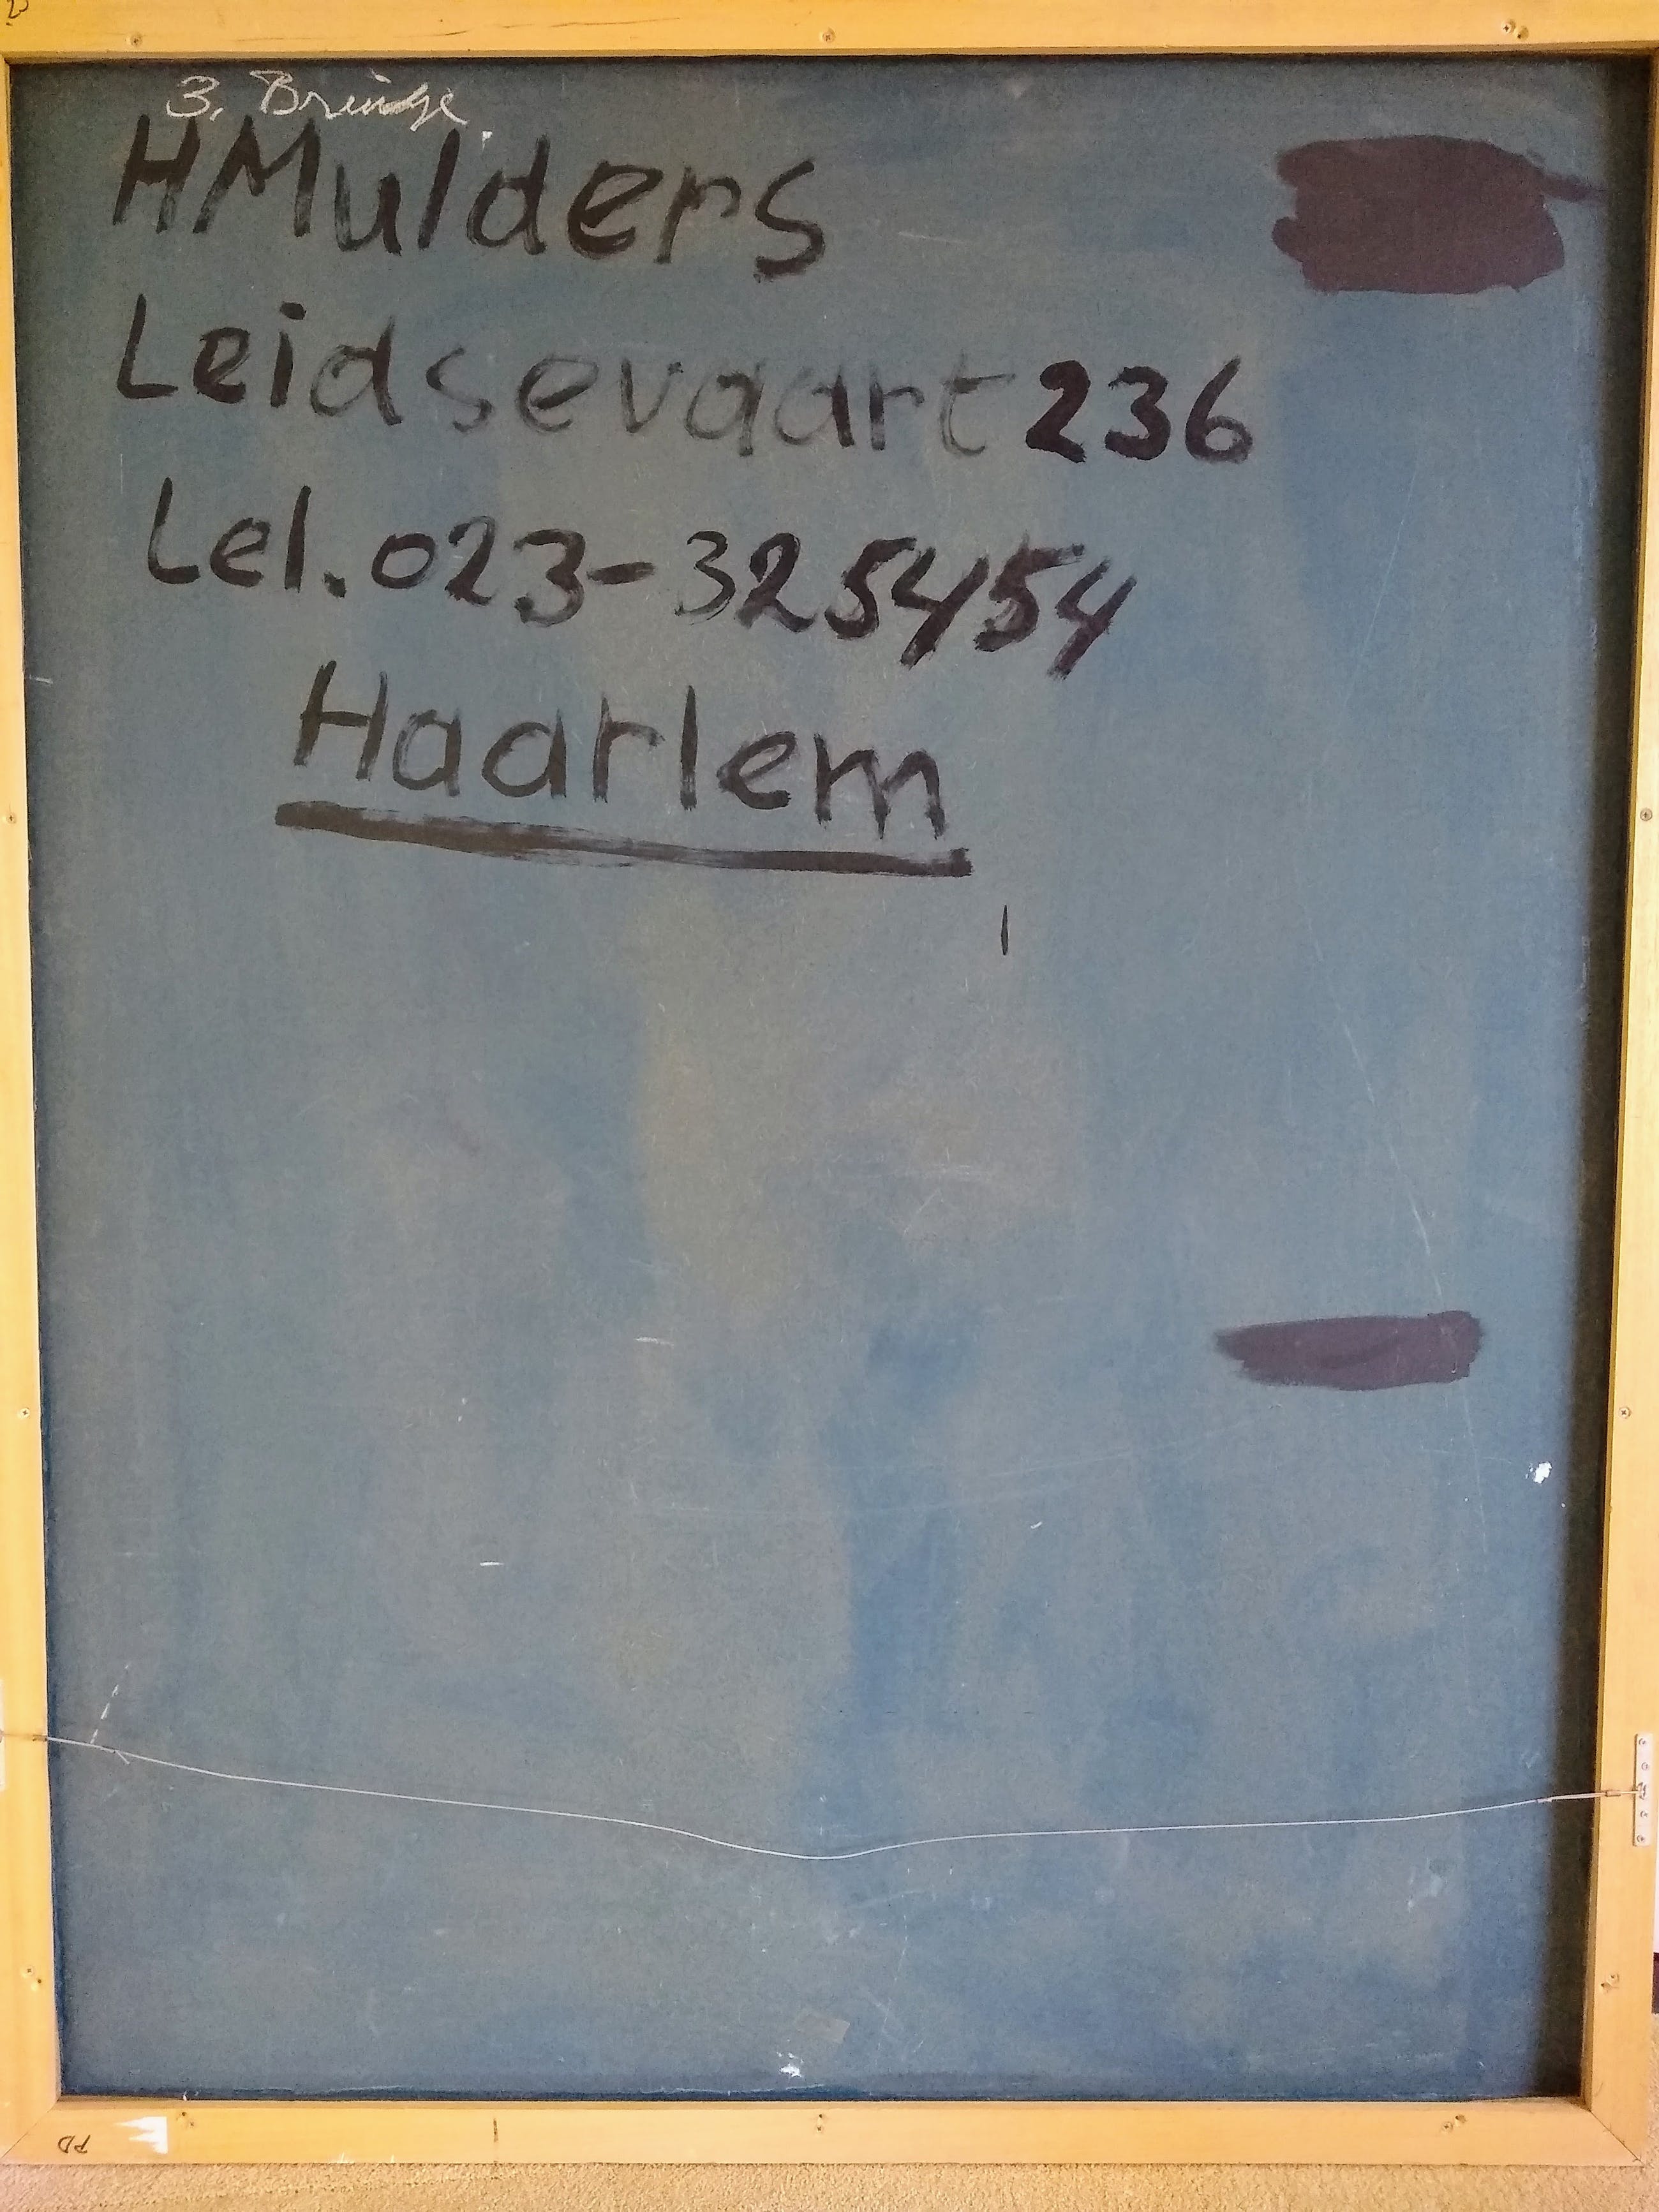 3. Bridge.
HMulders
Leidsevaart 236
Lel. 023-325454
Haarlem
PD